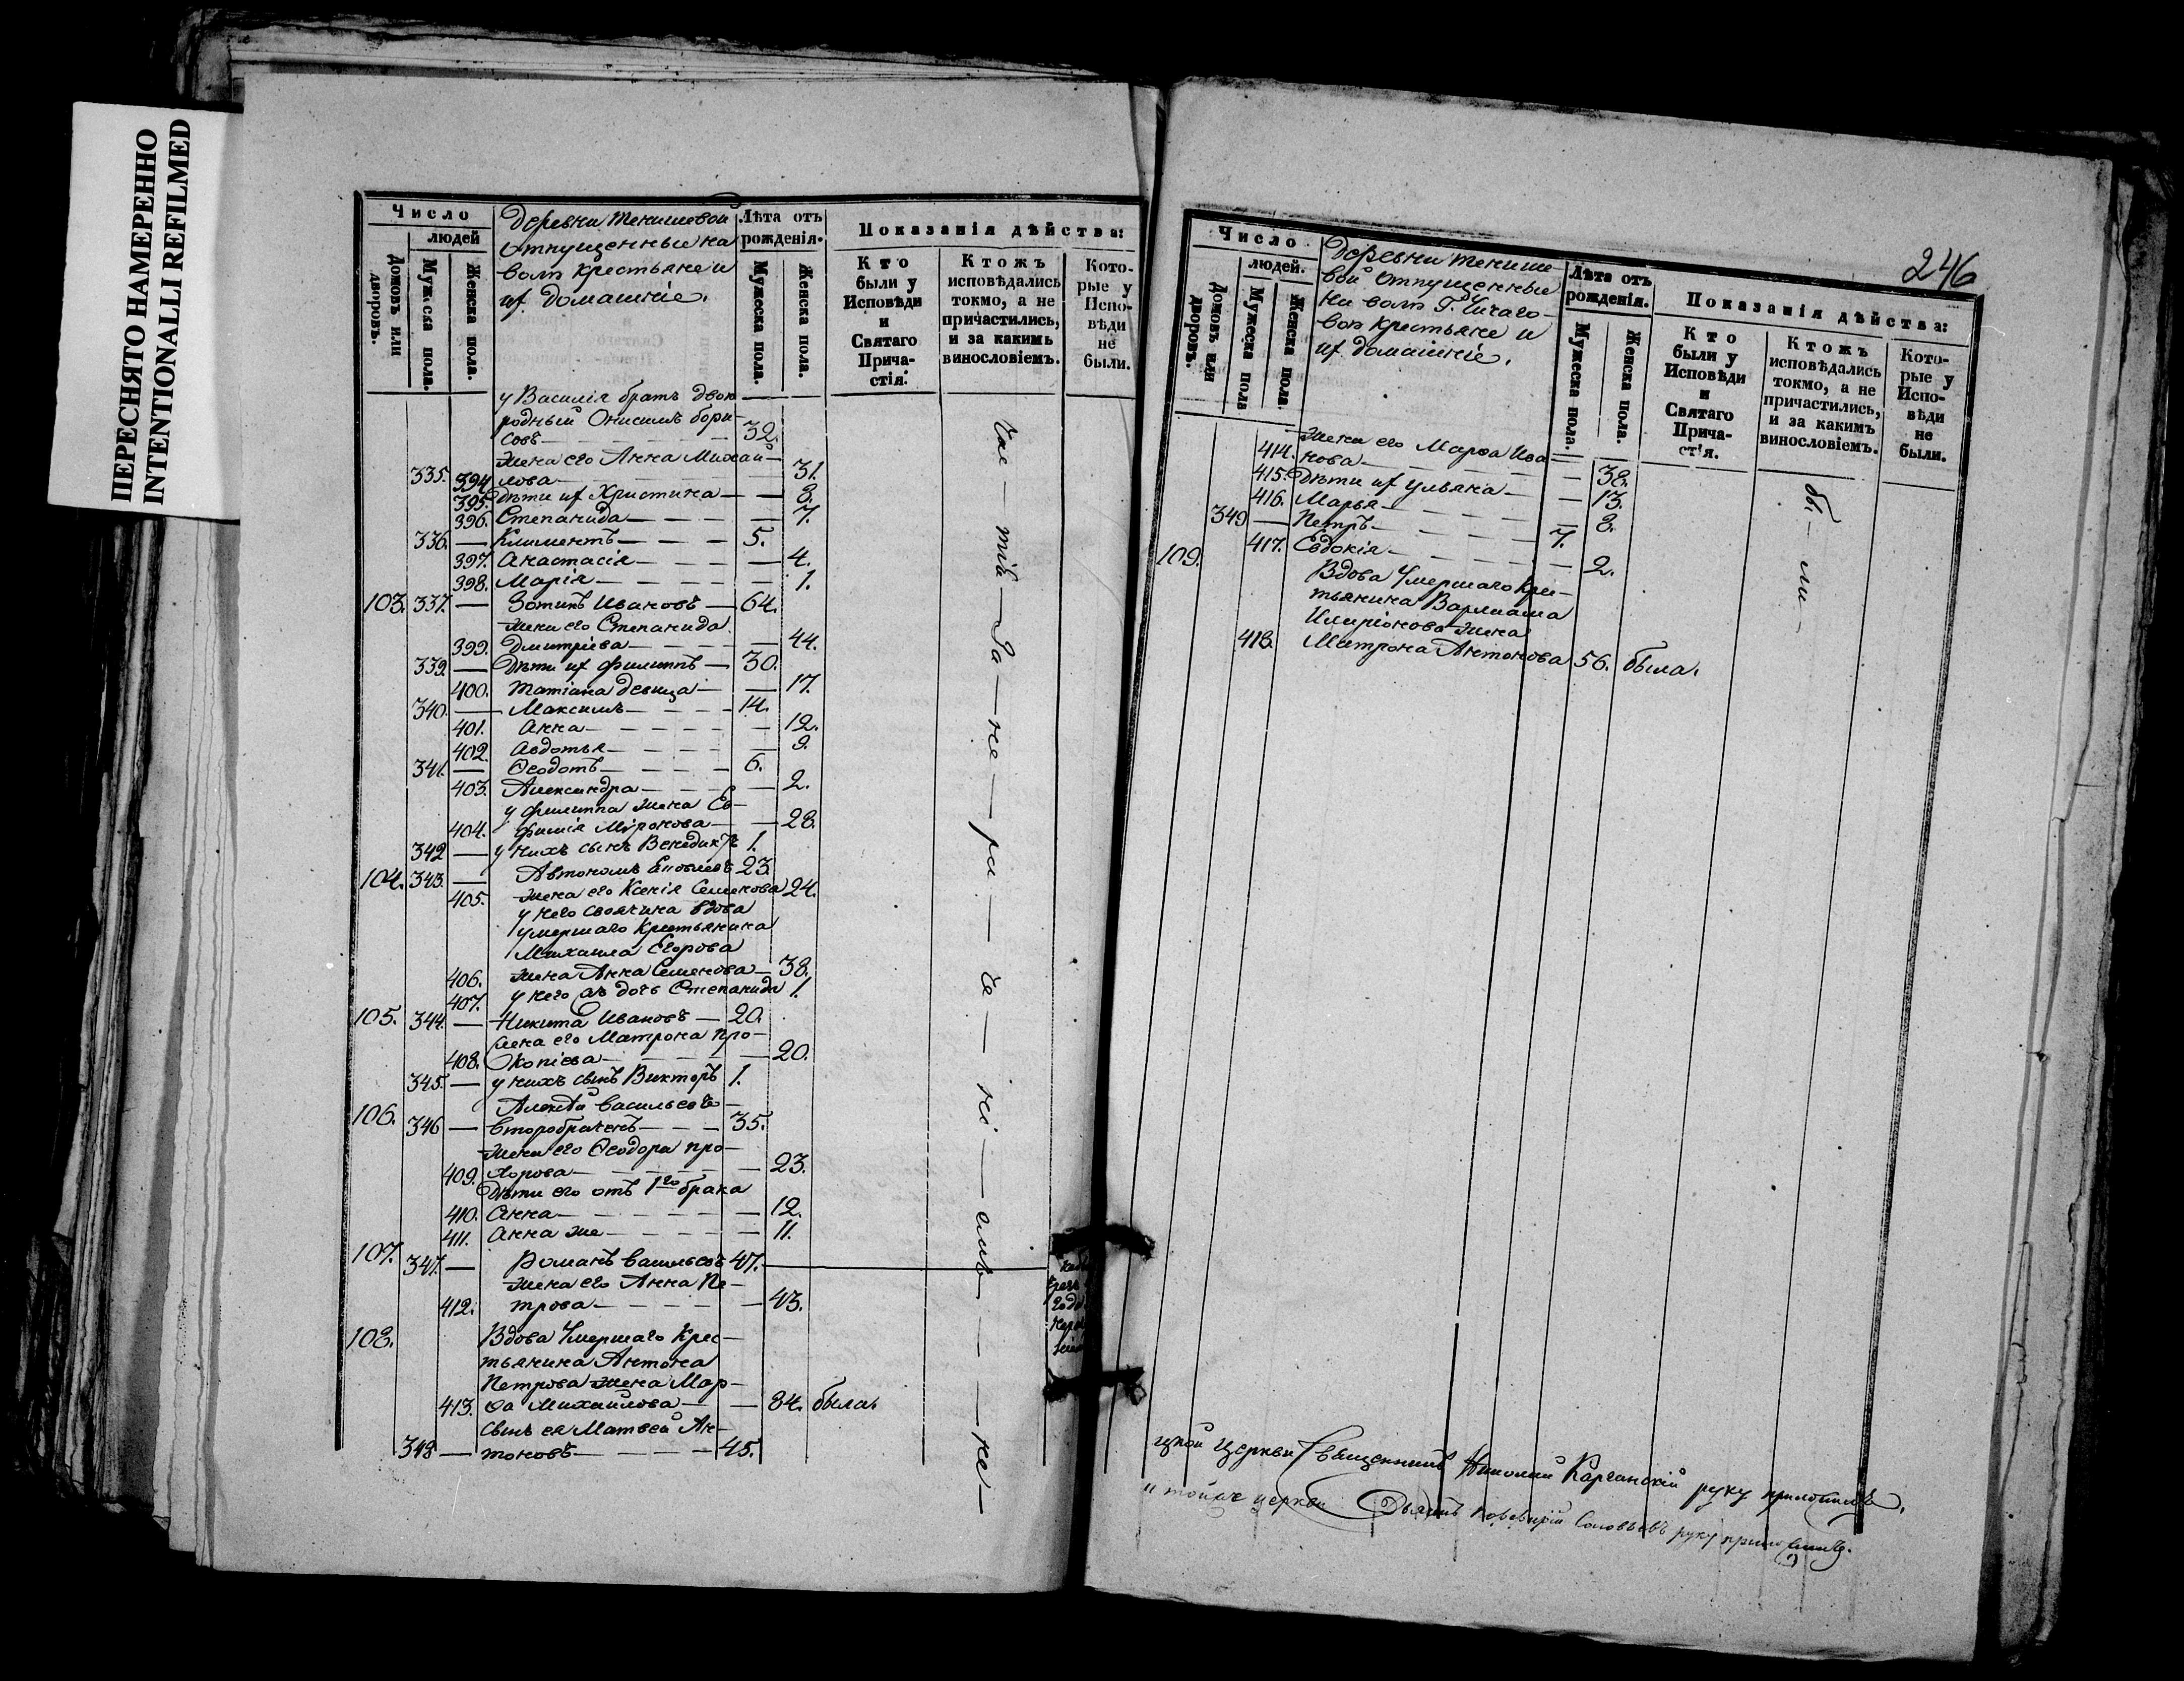 ПЕРЕСНЯТО НАМЕРЕННО
INTENTIONALLI REFILMED
Число
людей
Домовъ или дворовъ.
Мужеска пола.
Женска пола.
Деревни Текишевой
отпущенные на
волю крестьяне и
их домашніе.
Лѣта отъ
рожденія.
Мужеска пола.
Женска пола.
Показанія дѣйства:
Кто
были у
Исповѣди
и
Святаго
Прича-
стія.
Ктожъ
исповѣдались
токмо, а не
причастились,
и за какимъ
винословіемъ.
Кото-
рые у
Испо-
вѣди
не
были.
у Василія братъ двою-
родный Онисимъ Бори-
335. совъ 32.
жена его Анна Михаи-
394. лова 31.
395. Дѣти их Христина 8.
396. Степанида 7.
336. Климентъ 5.
397. Анастасія 4.
398. Марія 1.
103. 337. Зотикъ Ивановъ 64.
жена его Степанида
399. Дмитріева 44.
339. Дѣти их Филиппъ 30.
400. Татіана девица 17.
340. Максимъ 14.
401. Анна 12.
402. Авдотья 9.
341. Ѳеодотъ 6.
403. Александра 2.
у Филиппа жена Ев-
404. фимія Миронова 28.
342 у нихъ сынъ Венедиктъ 1.
104. 343. Автономъ 23.
405. жена его Ксенія Семенова 24.
у него своячина вдова
умершаго Крестьянина
Михаила Егорова
406. жена Анна Семенова 38.
407. у него дочь Степанида 1.
105. 344. Никита Ивановъ 20.
жена его Матрона Про-
408. копіева 20.
345. у нихъ сынъ Викторъ 1.
106. Алексѣй Васильевъ
346 второбраченъ 35.
жена его Ѳеодора Про-
409. хорова 23.
Дѣти его отъ 1го брака
410. Анна 12.
411. Анна же 11.
107. 347. Романъ Васильевъ 47.
жена его Анна Пе-
412. трова 43.
108. Вдова Умершаго Крес-
тьянина Антона
Петрова жена Мар-
413. ѳа Михайлова 84. была.
сынъ ея Матвей Ан-
348 тоновъ 45.
246
Число
людей.
Домовъ или дворовъ.
Мужеска пола
Женска пола.
Деревни Текише-
вой отпущенные
на волю Г. Чичаго-
вой крестьяне и
их домашніе.
Лѣта отъ
рожденія.
Мужеска пола.
Женска пола.
Показанія дѣйства:
Кто
были у
Исповѣди
и
Святаго
Прича-
стія.
Ктожъ
исповѣдались
токмо, а не
причастились,
и за какимъ
винословіемъ.
Кото-
рые у
Испо-
вѣди
не
были.
жена его Марѳа Ива-
414. нова 38.
415. Дѣти их Ульяна 13.
416. Марья 8.
349 Петръ 7.
417. Евдокія 2.
109. Вдова Умершаго Крес-
тьянина Варлаама
Иларіонова жена
418. Матрона Антонова 56. была.
бы — ли —
церкви Священникъ Николай руку приложилъ.
тойже церкви Дьячекъ Соловьевъ руку приложилъ.